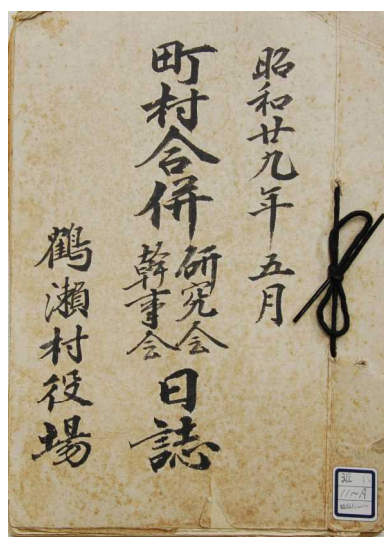 昭和廿九年五月
町村合併
研究会
幹事会
日誌
鶴瀬村役場
11~A